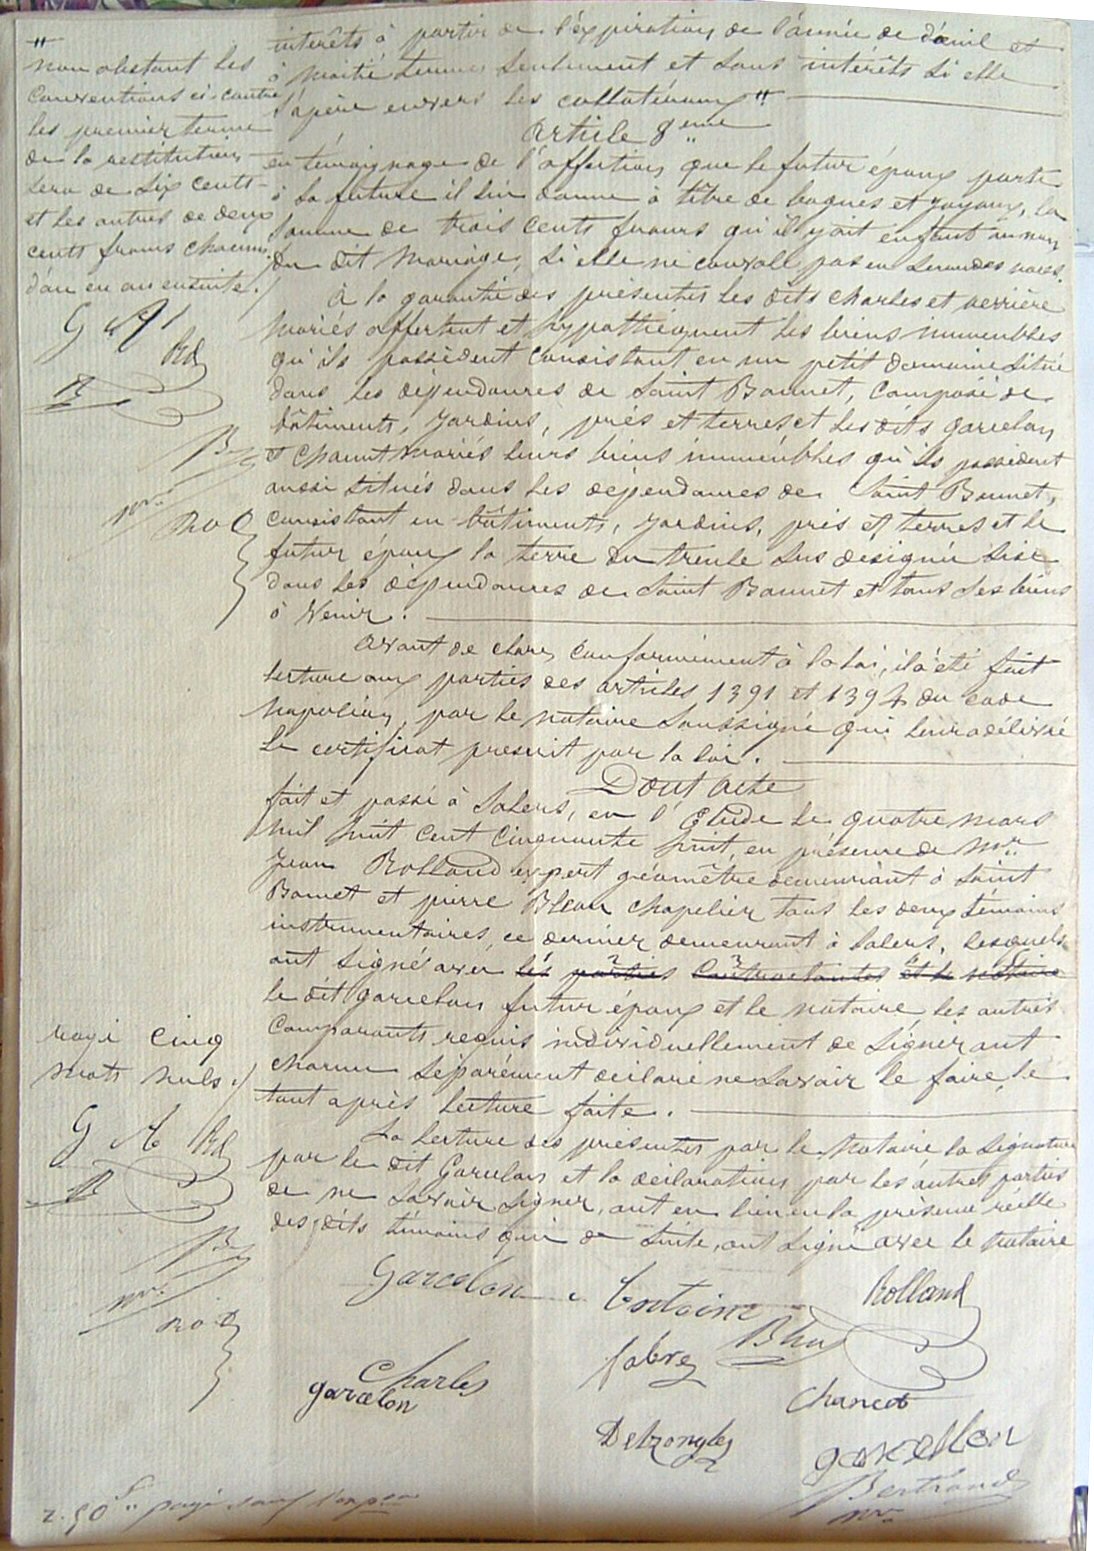 "
non obstant les
conventions ci-contre
les premier terme
de la restitution
sera de six cents
et les autres de deux
cents francs chacun
d'an en an ensuite ./
G A
Rd
B
nre
intérêts à partir de l'éxpiration de l'année de deuil et
à moitié terme seulement et sans intérêts si elle
s'opère envers les collatéraux "
Article 8eme
en témoignage de l'affection que le futur époux porte
à la future il lui donne à titre de bagues et joyaux, la
somme de trois cents francs qu'il y ait enfant ou non
du dit mariage, si elle ne convole pas en secondes noces.
à la garantie des présentes les dits charles et verrière
mariés affectent et hypothèquent les biens immeubles
qu'ils possèdent consistant en un petit domaine situé
dans les dépendances de Saint Bonnet, composé de
bâtiments, jardins, prés et terres et les dits garcelon
et chanut mariés leurs biens immeubles qu'ils possèdent
aussi situés dans les dépendances de Saint Bonnet,
consistant en bâtiments, jardins, prés et terres et le
futur époux la terre du sus designée sise
dans les dépendances de Saint Bonnet et tous ses biens
à Venir.
avant de clore, conformément à la loi, il à été fait
lecture aux parties des articles 1391 et 1394 du code
Napoléon, par le notaire soussigné qui leur a délivré
le certificat prescrit par la loi.
Dont acte
fait et passé à Salers, en l'Etude le quatre mars
mil huit cent cinquante huit, en présence de Mr
Jean Rolland expert géomètre demeurant à Saint
Bonnet et pierre Bleau chapelier tous les deux témoins
instrumentaires, ce dernier demeurant à Salers, lesquels
ont signé avec les parties contractantes et le notaire
le dit garcelon futur époux et le notaire les autres
comparants requis individuellement de signer ont
chacun séparément déclaré ne savoir le faire, le
tout après lecture faite.
rayé cinq
mots nuls ./
G A Rd
B
nre
La lecture des présentes par le Notaire la signature
par le dit Garcelon et la déclaration par les autres parties
de ne savoir signer, ont eu lieu en la présence réelle
des dits témoins qui de suite, ont signé avec le Notaire
Garcelon Antoine Rolland
Bleau
Charles fabre
garcelon Chancet
Delzongles garcellon
Bertrand
nre
2.50 payé